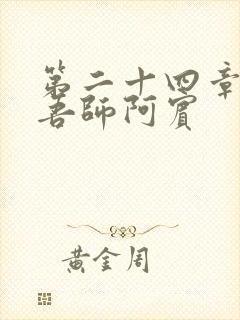 第二十四章
吾師阿賓
黃金周